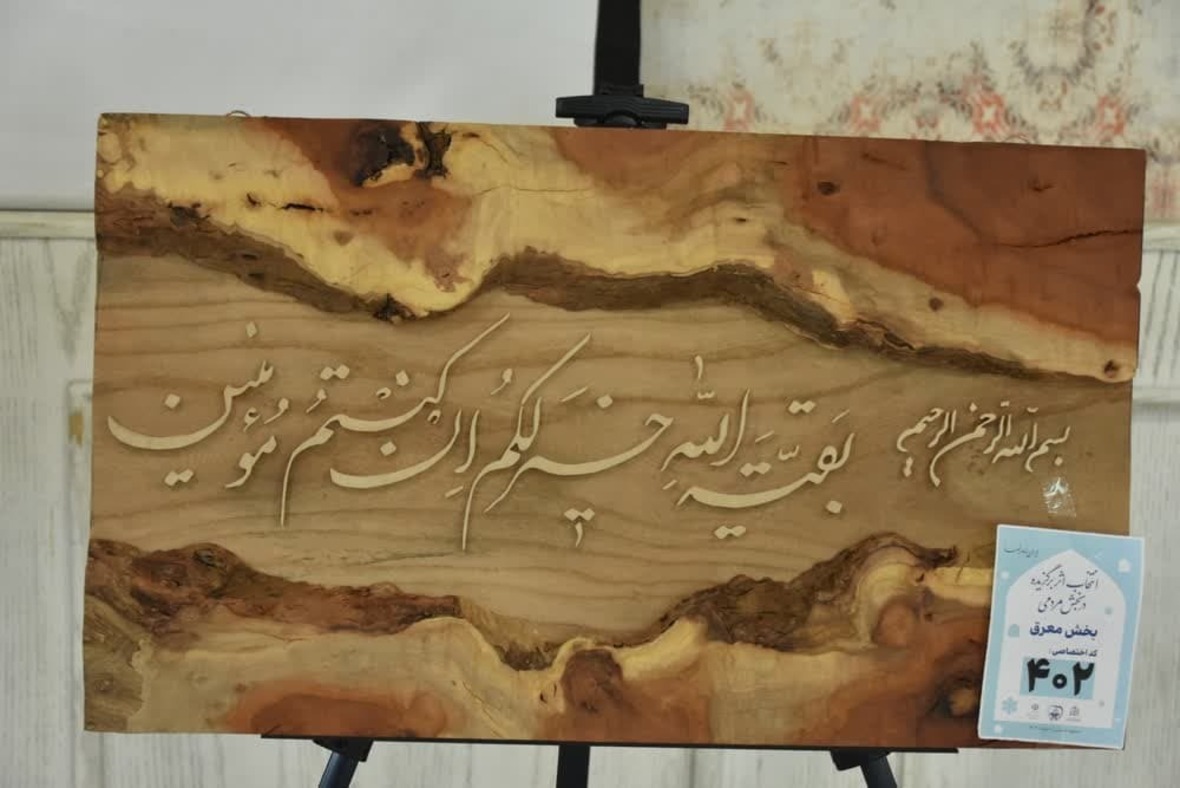 بسم الله الرحمن الرحیم
بَقیَّةُ اللهِ خَیرٌ لَکُم اِن کُنتُم مُؤمِنین
انتخاب اثر برگزیده
در بخش مردمی
بخش معرق
کد اختصاصی:
۴۰۲